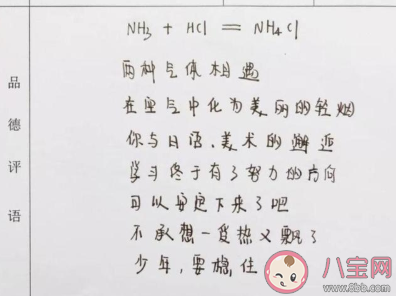 品德评语
NH3 + HCl = NH4Cl
两种气体相遇
在空气中化为美丽的轻烟
你与日语、美术的邂逅
学习终于有了努力的方向
可以安定下来了吧
不承想一受热又飘了
少年,要稳住
八宝网
www.8bb.com